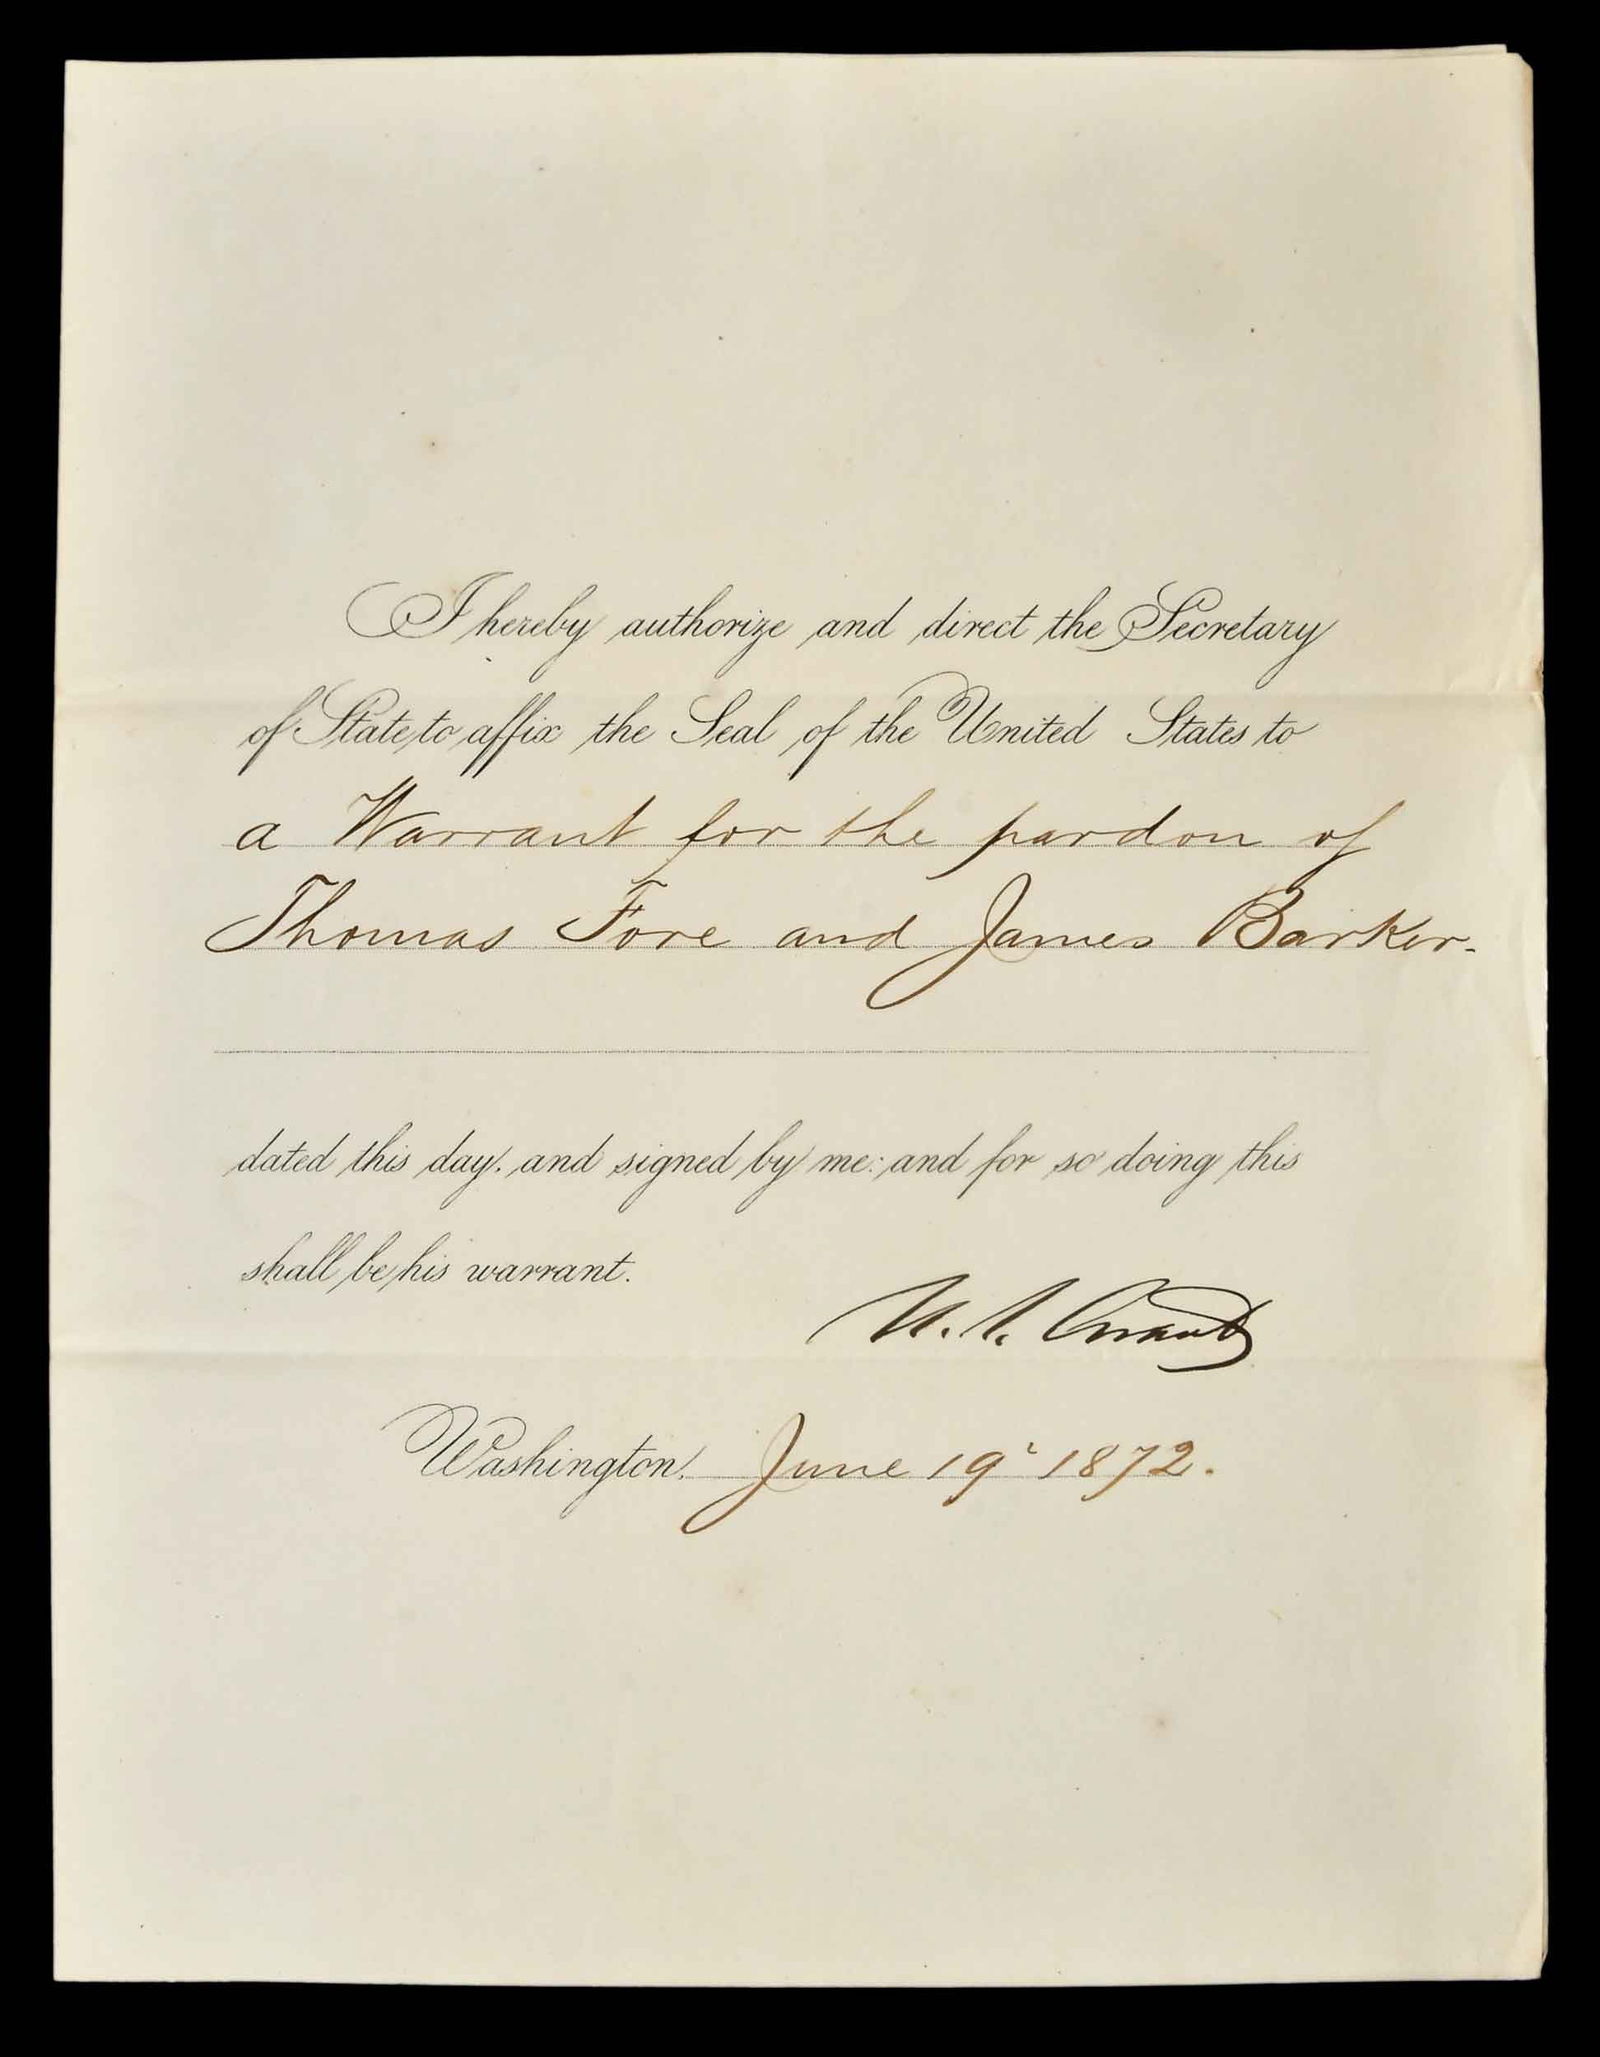 I hereby authorize and direct the Secretary
of State to affix the Seal of the United States to
a Warrant for the pardon of
Thomas Fore and James Barker.
dated this day, and signed by me: and for so doing this
shall be his warrant.
U. S. Grant
Washington, June 19' 1872.